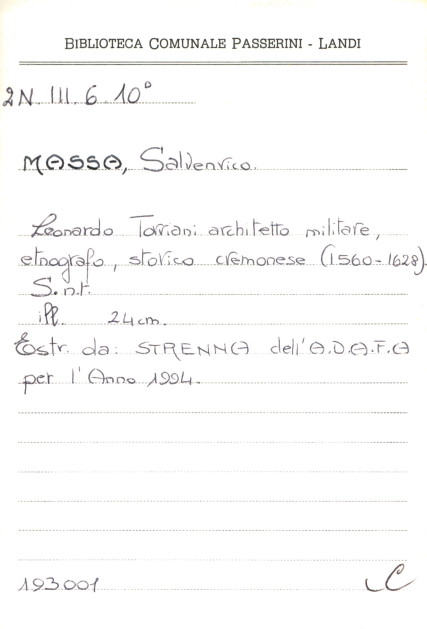 BIBLIOTECA COMUNALE PASSERINI - LANDI
2N. III. 6. 10°
MASSA, Salvenrico.
Leonardo Torriani architetto militare,
etnografo, storico cremonese (1560-1628).
S.n.t.
ill. 24cm.
Estr. da: STRENNA dell'A.D.A.F.A
per l'Anno 1994.
193001